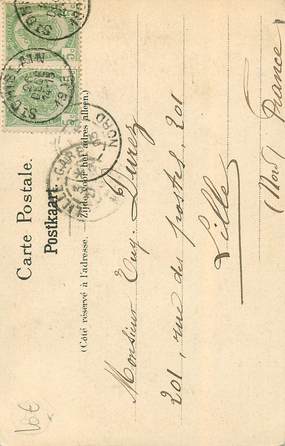 Carte Postale.
Postkaart
(Côté réservé à l'adresse. — Zijde voor het adres alleen.)
Monsieur Eug. Durez
201, rue des postes, 201
Lille
(Nord) France
LILLE-GARE
NORD
10€